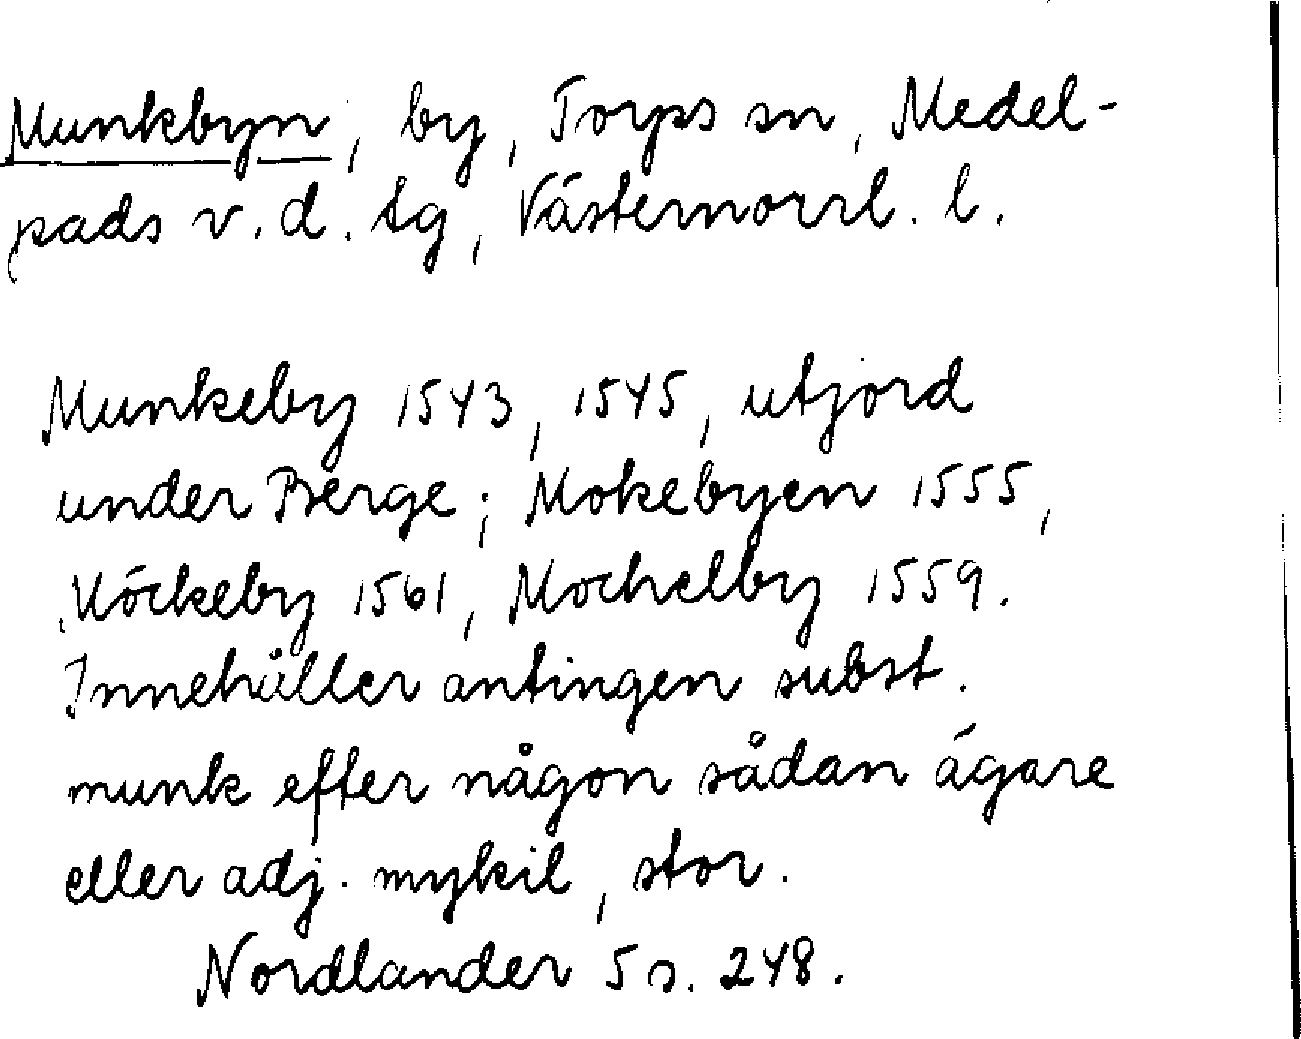 Munkbyn, by, Torps sn, Medel-
pads v. d. tg, Västernorrl. l.
Munkeby 1543, 1545, utjord
under Berge; Mokebyen 1555,
Möckeby 1561, Mochelby 1559.
Innehåller antingen subst.
munk efter någon sådan ägare
eller adj. mykil, stor.
Nordlander 5 s. 248.